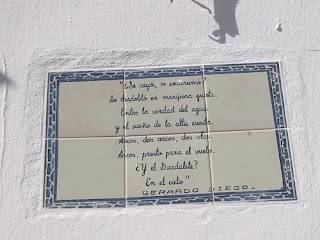 "¿Se cayó, se encaramó?
Se desdobló en mariposa quieta.
Entre la verdad del agua
y el sueño de la alta cuesta.
Arcos, dos arcos, dos alas.
Arcos, presto para el vuelo.
¿Y el Guadalete?
En el cielo"
GERARDO DIEGO_